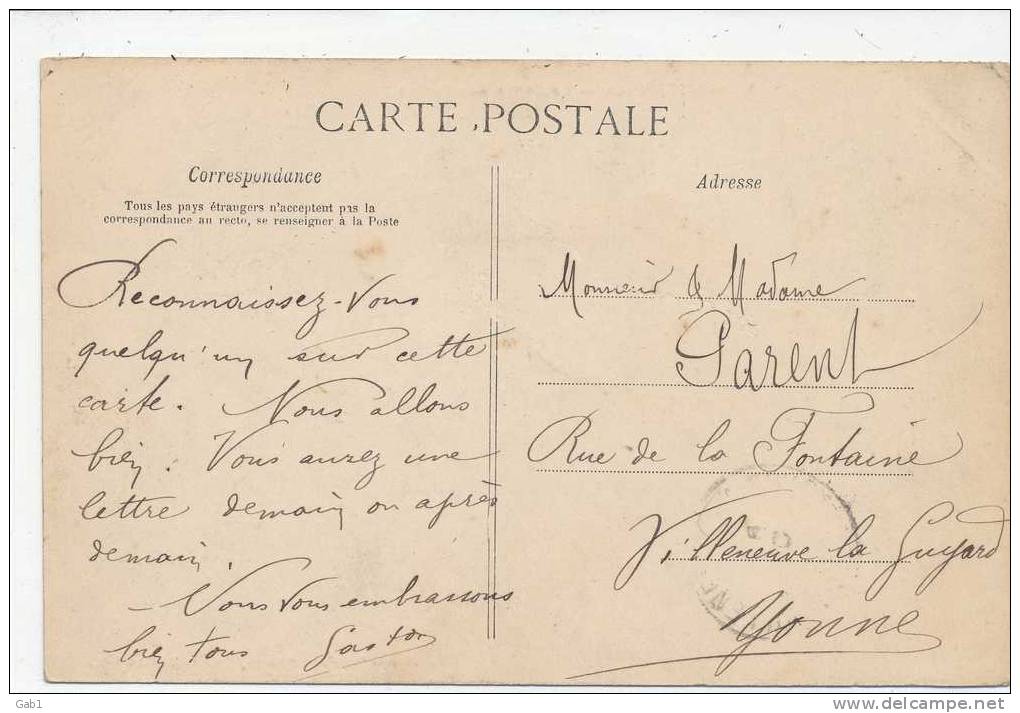 CARTE POSTALE
Correspondance
Tous les pays étrangers n'acceptent pas la
correspondance au recto, se renseigner à la Poste
Reconnaissez-vous
quelqu'un sur cette
carte. Nous allons
bien. Vous aurez une
lettre demain ou après
demain.
- Nous vous embrassons
bien tous Gaston
Adresse
Monsieur & Madame
Parent
Rue de la Fontaine
Villeneuve la Guyard
Yonne
Gab1
delcampe.net